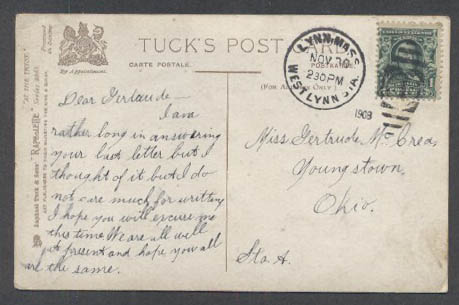 TUCK'S POST CARD
CARTE POSTALE.
POSTKARTE.
By Appointment.
(For Address Only)
LYNN, MASS.
NOV 30
2 30 PM
WEST LYNN STA.
1908
Raphael Tuck & Sons' "RAPHOTYPE"
Dear Gertrude —
I am
rather long in answering
your last letter but I
thought of it but I do
not care much for writting
I hope you will excuse me
this time. We are all well
at present and hope you all
are the same.
Miss Gertrude Mc Crea,
Youngstown,
Ohio.
Sta A.